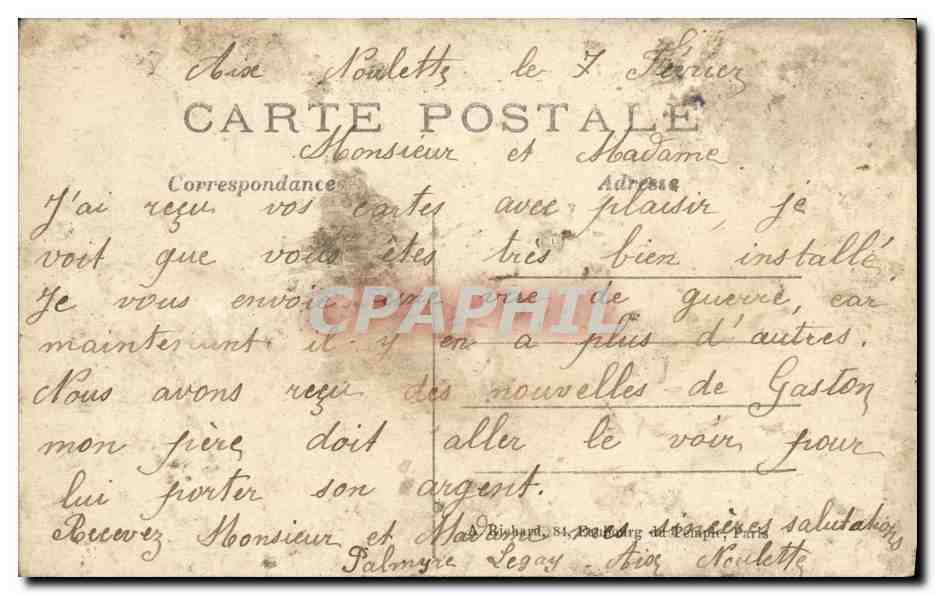 Aix Noulette le 7 Février
CARTE POSTALE
Monsieur et Madame
Correspondance Adresse
J'ai reçu vos cartes avec plaisir, je
voit que vous êtes très bien installé.
Je vous envoie une vue de guerre, car
maintenant il y en a plus d'autres.
CPAPHIL
Nous avons reçu des nouvelles de Gaston
mon père doit aller le voir pour
lui porter son argent.
Recevez Monsieur et Madame mes sincères salutations
A. Richard, 84, Faubourg du Temple, Paris
Palmyre Legay Aix Noulette